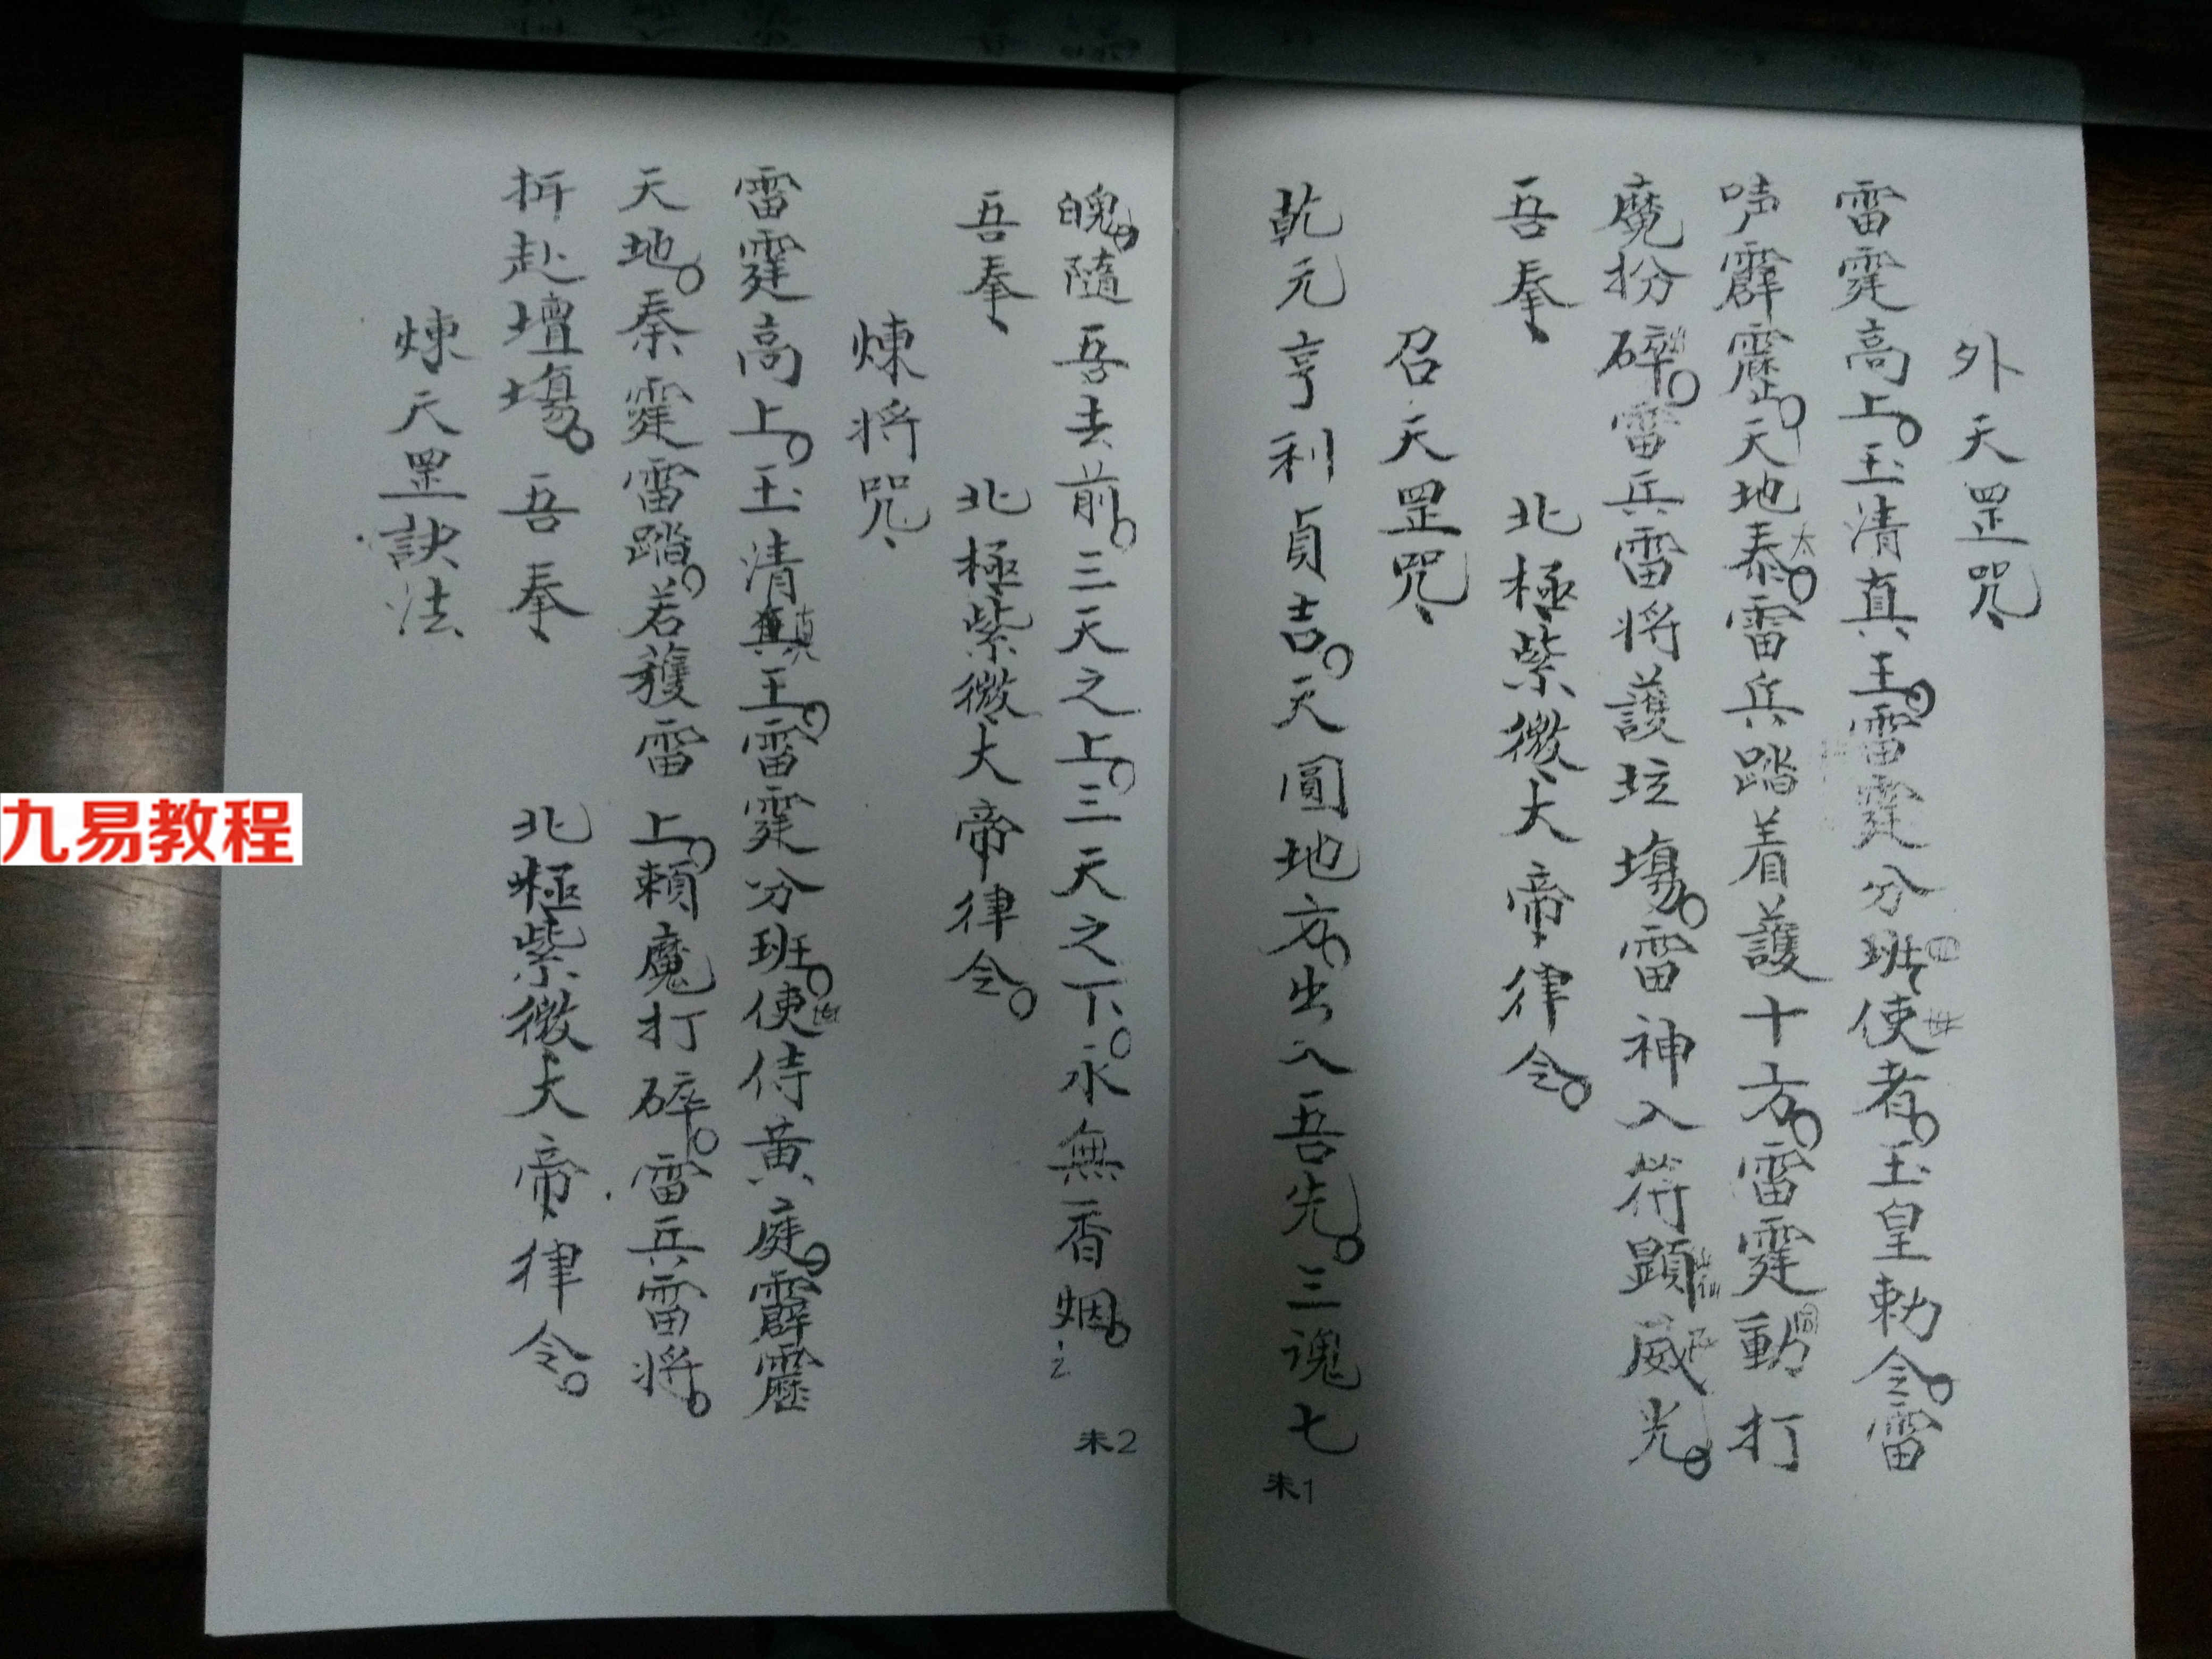 外天罡咒、
雷霆高上。玉清真王。雷霆分班使者。玉皇勅令。雷
声霹靂。天地泰。雷兵踏着護十方。雷霆動打
太
魔扮碎。雷兵雷将護坛塲。雷神入符顕威光。
吾奉、 北極紫微大帝律令。
召天罡咒、
乾元亨利貞吉。天圓地方。出入吾先。三魂七
未1
魄。隨吾去前。三天之上。三天之下。永無香烟。
未2
吾奉、 北極紫微大帝律令。
煉将咒、
雷霆高上。玉清真王。雷霆分班。使侍黃庭。霹靂
真
天地。秦霆雷踏。若頀雷上。賴魔打碎。雷兵雷将。
折赴壇塲。吾奉、 北極紫微大帝律令。
煉天罡訣法
九易教程